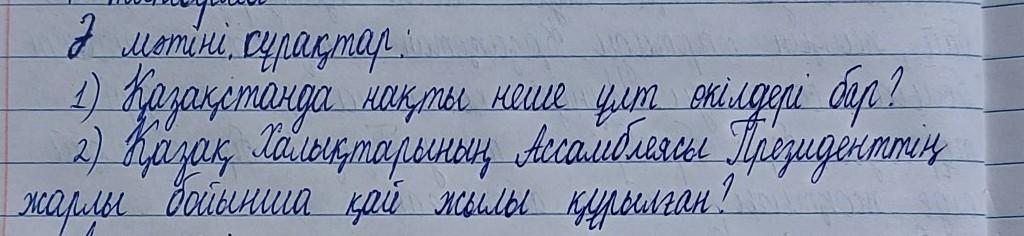 Ә мәтіні. сұрақтар:
1) Қазақстанда нақты неше ұлт өкілдері бар?
2) Қазақ Халықтарының Ассамблеясы Президенттің
жарлы бойынша қай жылы құрылған?